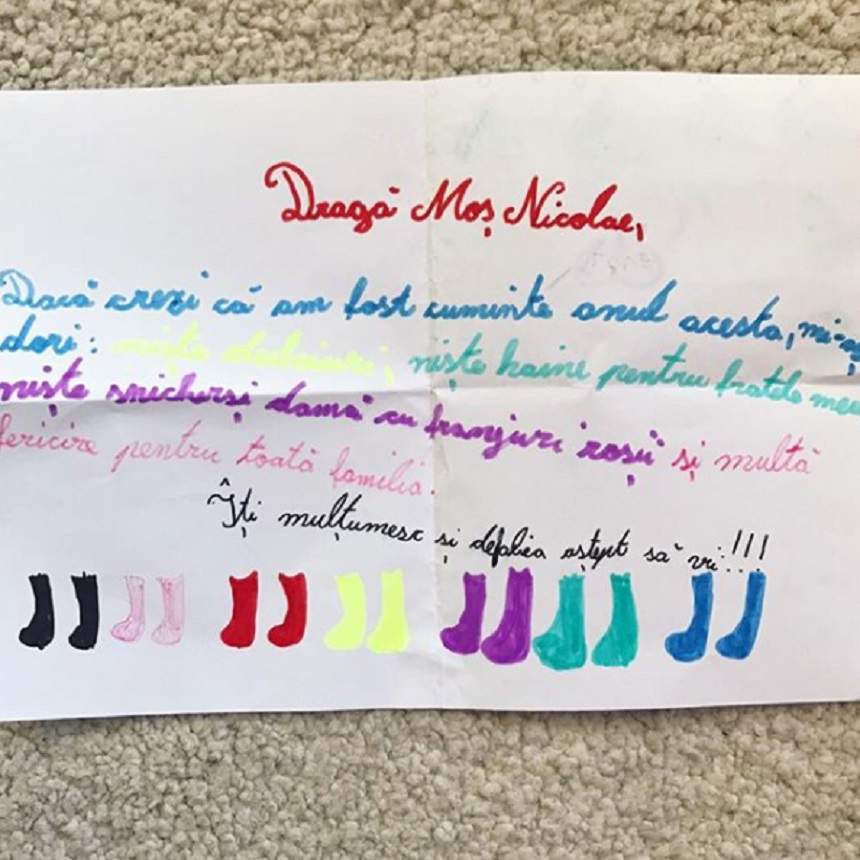 Dragă Moș Nicolae,
Dacă crezi că am fost cuminte anul acesta, mi-aș
dori: niște dulciuri, niște haine pentru fratele meu
niște snickerși damă cu franjuri roșii și multă
fericire pentru toată familia.
Îți mulțumesc și deabea aștept să vii!!!